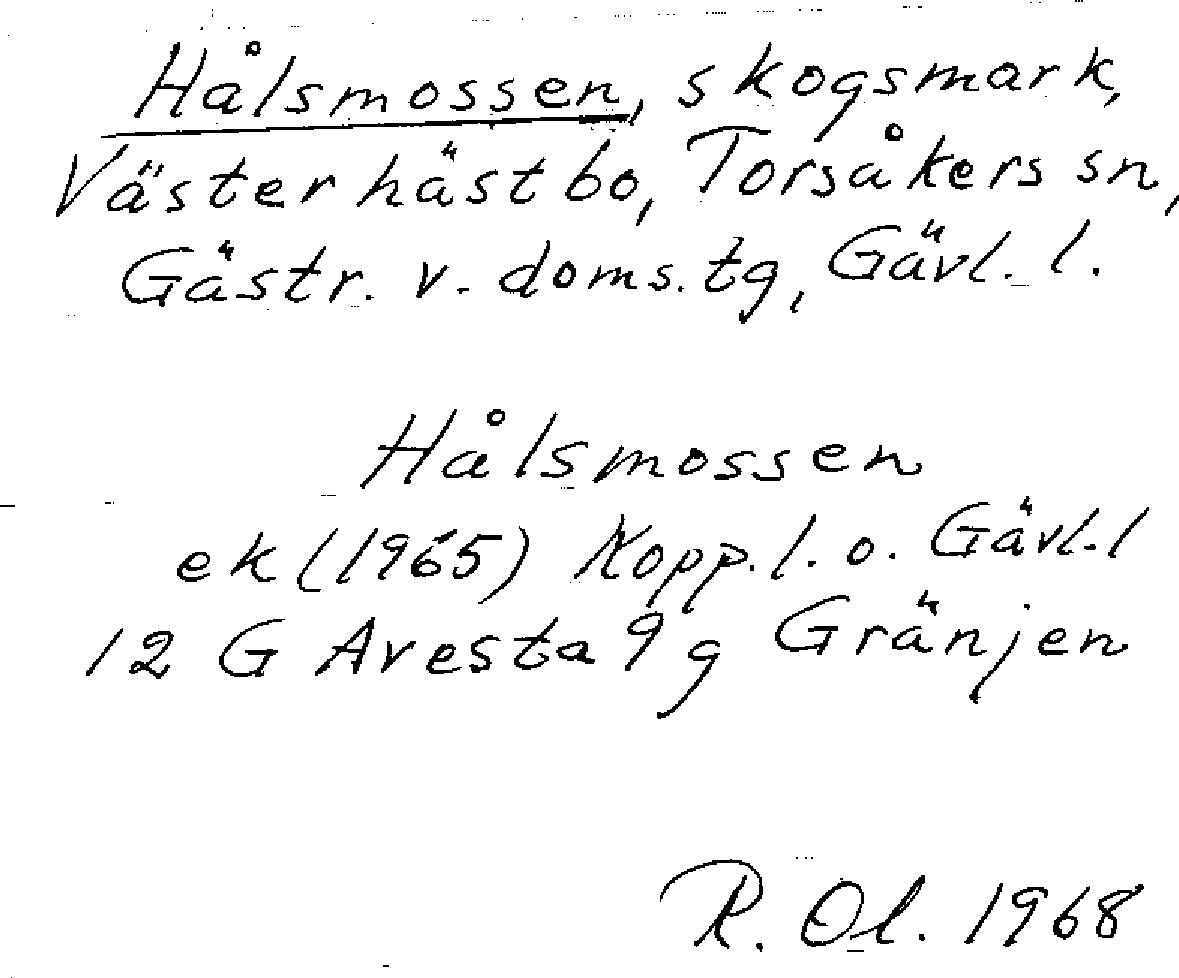 Hålsmossen, skogsmark,
Västerhästbo, Torsåkers sn,
Gästr. v. doms. tg, Gävl. l.
Hålsmossen
ek (1965) Kopp. l. o. Gävl. l
12 G Avesta 9 g Gränjen
R. Ol. 1968